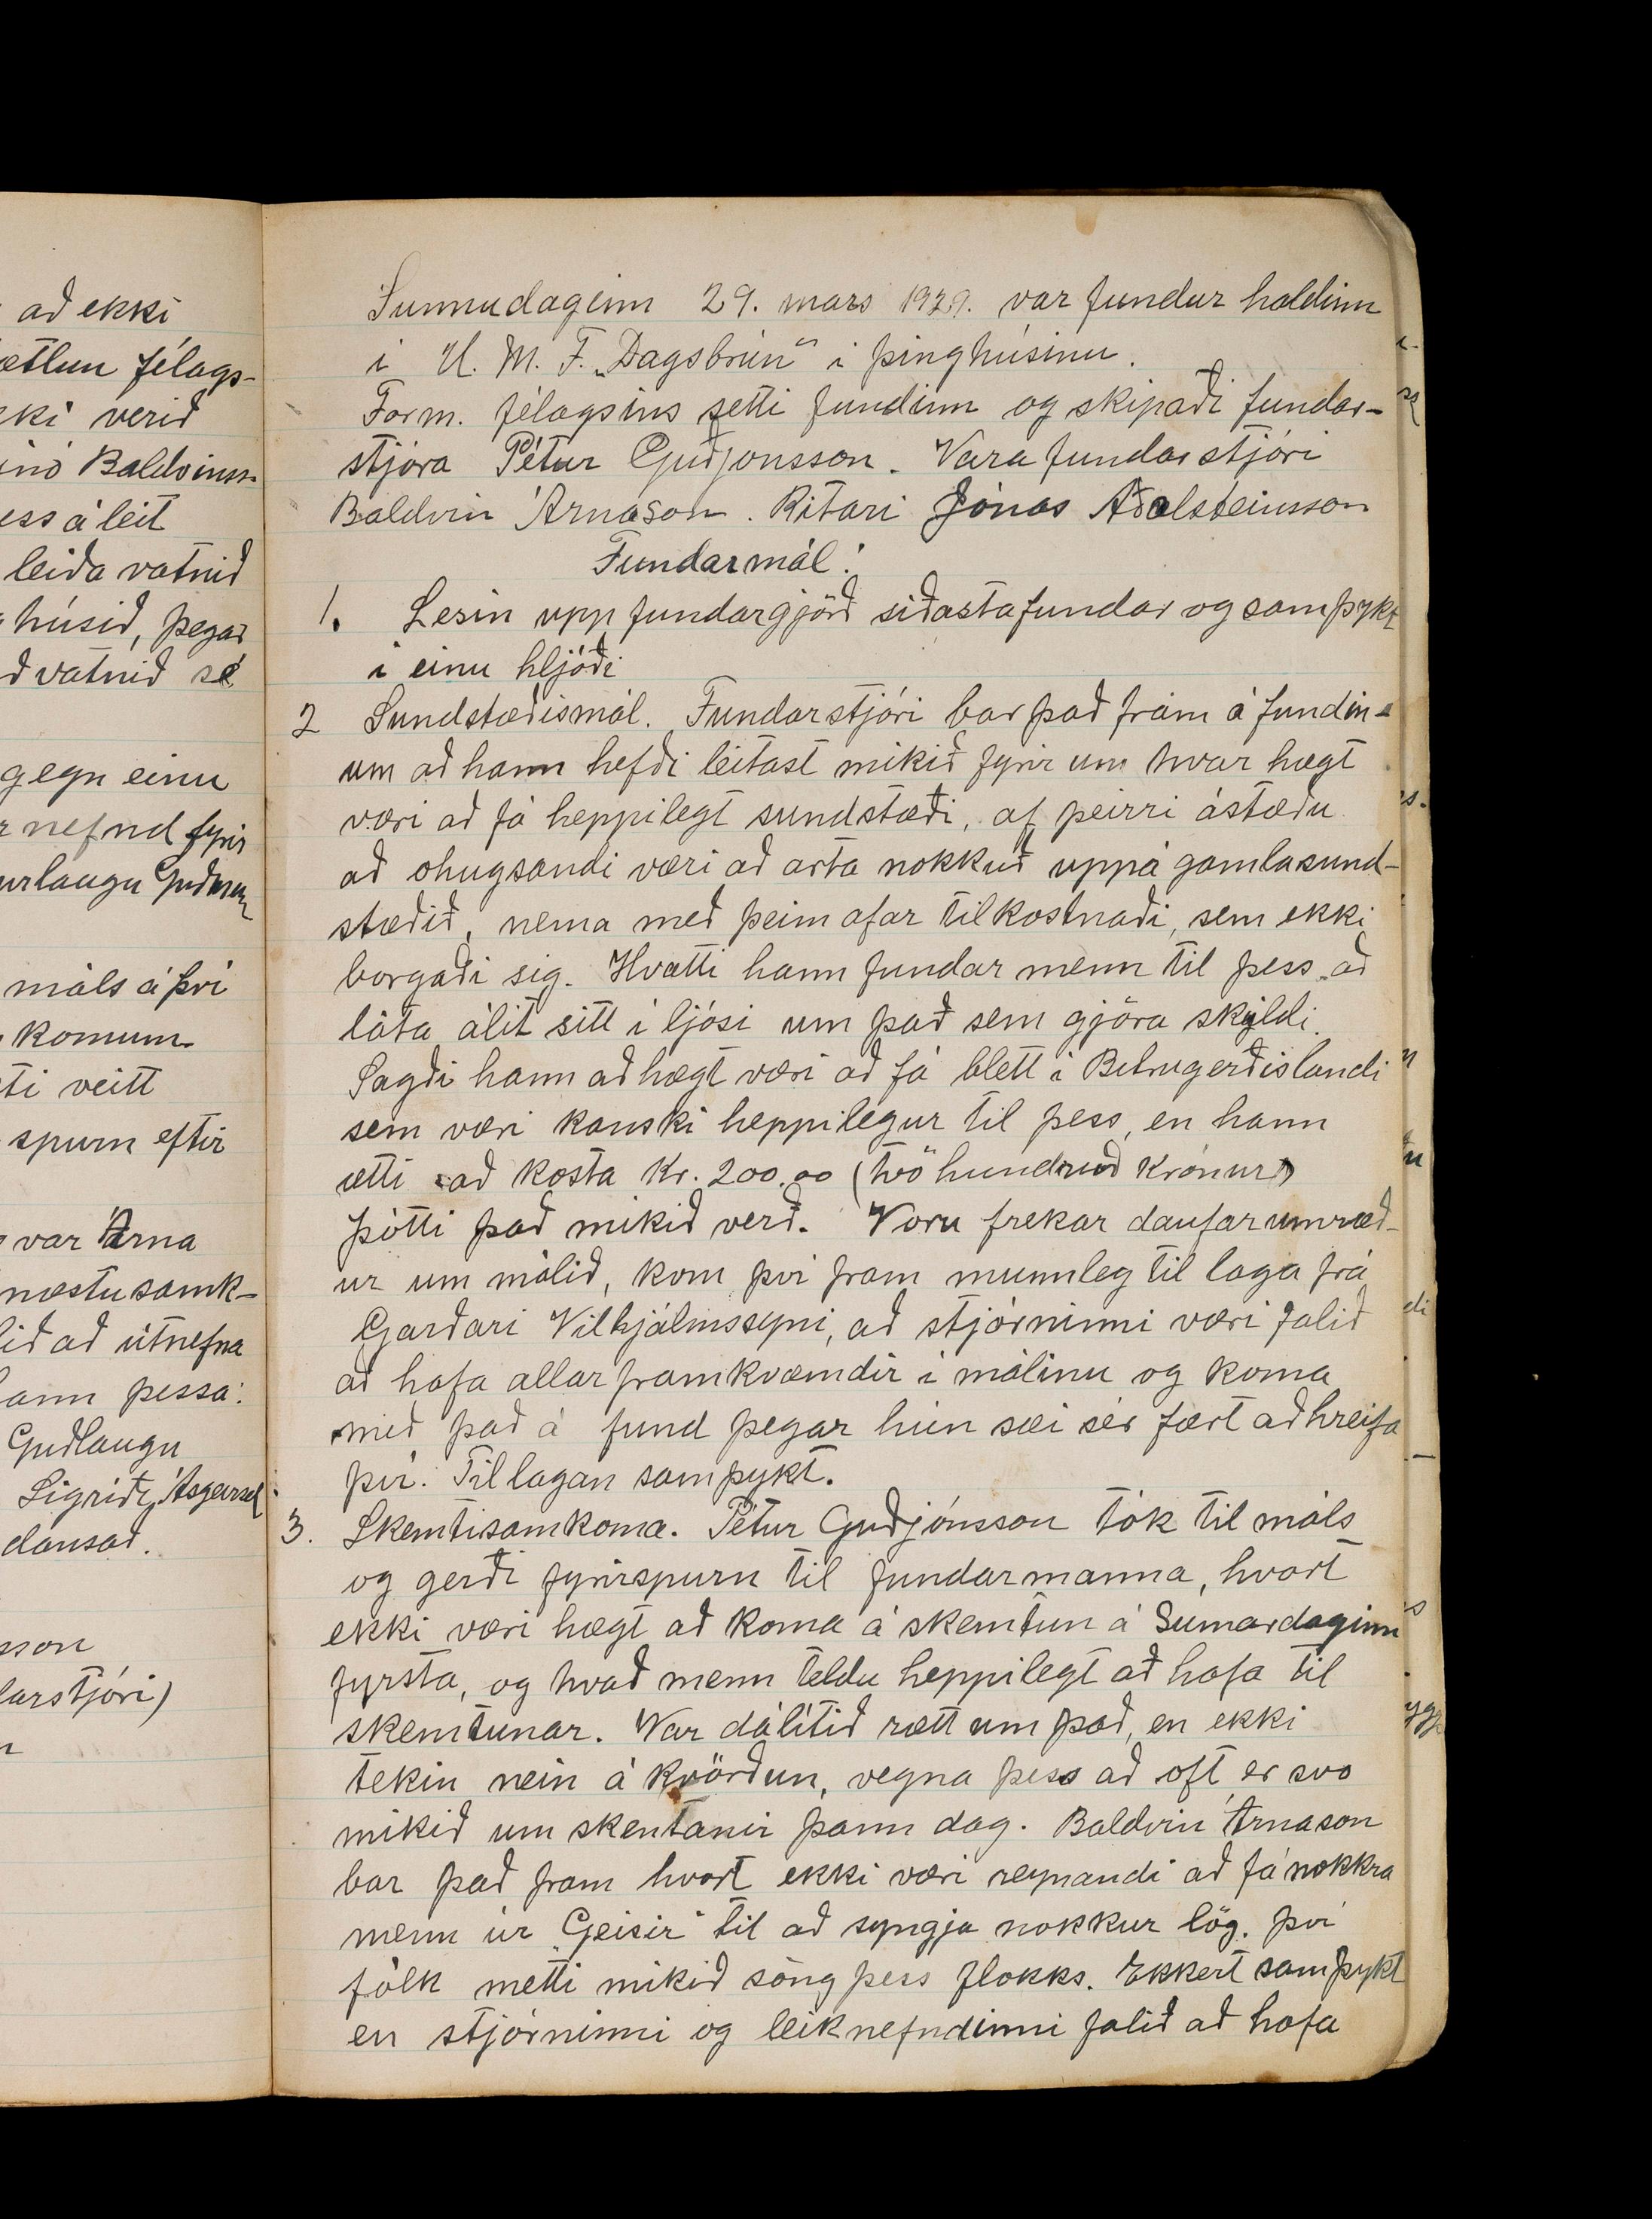 að ekki
ætlun félags-
ekki verið
inó Baldvinss.
ess á leit
leiða vatnið
húsið, þegar
ð vatnið sé
gegn einu
nefnd fyrir
urlaugu Guðmun
máls á því
komum
ti veitt
spurn eftir
var Árna
næstu samk-
lið að útnefna
ann þessa:
Guðlaugu
Sigríði, Ásgeirsd.
dansað.
sson
darstjóri)
Sunnudaginn 29. mars 1929. var fundur haldinn
i U. M. F. „Dagsbrún“ i þinghúsinu.
Form. félagsins setti fundinn og skipaði fundar-
stjóra Pétur Guðjonsson. Vara fundarstjóri
Baldvin Árnason. Ritari Jónas Aðalsteinsson
Fundarmál:
1. Lesin upp fundargjörð siðasta fundar og samþykt
i einu hljóði
2 Sundstæðismál. Fundarstjóri bar það fram á fundin-
um að hann hefði leitast mikið fyrir um hvar hægt
væri að fá heppilegt sundstæði, af þeirri ástæðu
að ohugsandi væri að arta nokkuð uppá gamla sund-
stæðið, nema með þeim afar tilkostnaði, sem ekki
borgaði sig. Hvatti hann fundar menn til þess að
láta álit sitt i ljósi um það sem gjöra skyldi.
Sagði hann að hægt væri að fá blett i Bitrugerðislandi
sem væri kanski heppilegur til þess, en hann
ætti að kosta Kr. 200.00 (tvö hundruð krónur)
þótti það mikið verð. Voru frekar daufar umræð-
ur um málið, kom þvi fram munnleg til laga frá
Garðari Vilhjálmssyni, að stjórninni væri falið
að hafa allar framkvæmdir i málinu og koma
með það á fund þegar hún sæi sér fært að hreifa
því. Tillagan samþykt.
3. Skemtisamkoma. Pétur Guðjónsson tók til máls
og gerði fyrirspurn til fundarmanna, hvort
ekki væri hægt að koma á skemtun á Sumardaginn
fyrsta, og hvað menn teldu heppilegt að hafa til
skemtunar. Var dálítið rætt um það, en ekki
tekin nein á kvörðun, vegna þess að oft er svo
mikið um skentanir þann dag. Baldvin Árnason
bar það fram hvort ekki væri reynandi að fá nokkra
menn úr „Geisir“ til að syngja nokkur lög, því
fólk metti mikið söng þess flokks. Ekkert samþykt
en stjórninni og leiknefndinni falið að hafa